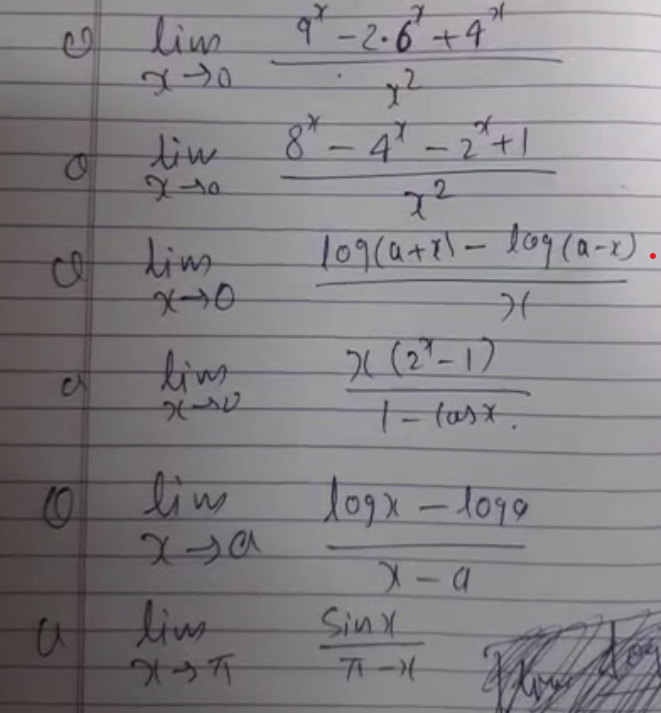 Q lim x→0 (9^x − 2·6^x + 4^x) / x^2
Q lim x→0 (8^x − 4^x − 2^x + 1) / x^2
Q lim x→0 (log(a+x) − log(a−x)) / x
Q lim x→0 x(2^x − 1) / (1 − cosx.)
Q lim x→a (logx − loga) / (x − a)
Q lim x→π sinx / (π − x)